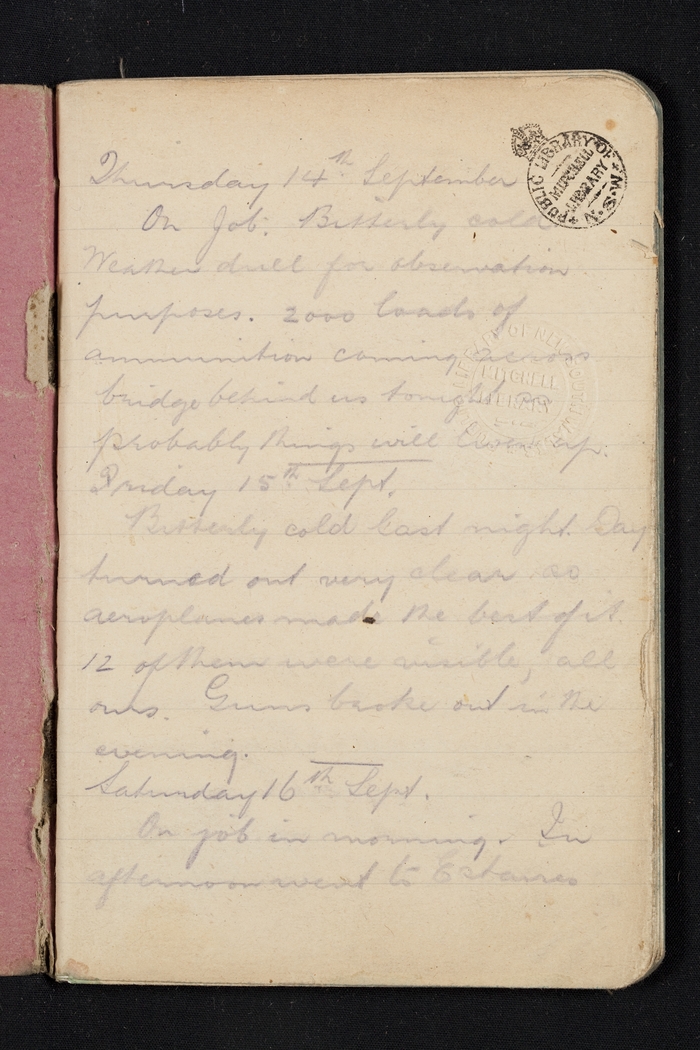 Thursday 14th September
On Job. Bitterly cold
Weather dull for observation
purposes. 2000 loads of
ammunition coming across
bridge behind us tonight so
probably things will liven up.
Friday 15th Sept.
Bitterly cold last night. Day
turned out very clear so
aeroplanes made the best of it.
12 of them were visible, all
ours. Guns broke out in the
evening.
Saturday 16th Sept.
On job in morning. In
afternoon went to Estaires
PUBLIC LIBRARY OF N.S.W.
MITCHELL
LIBRARY
MITCHELL
LIBRARY